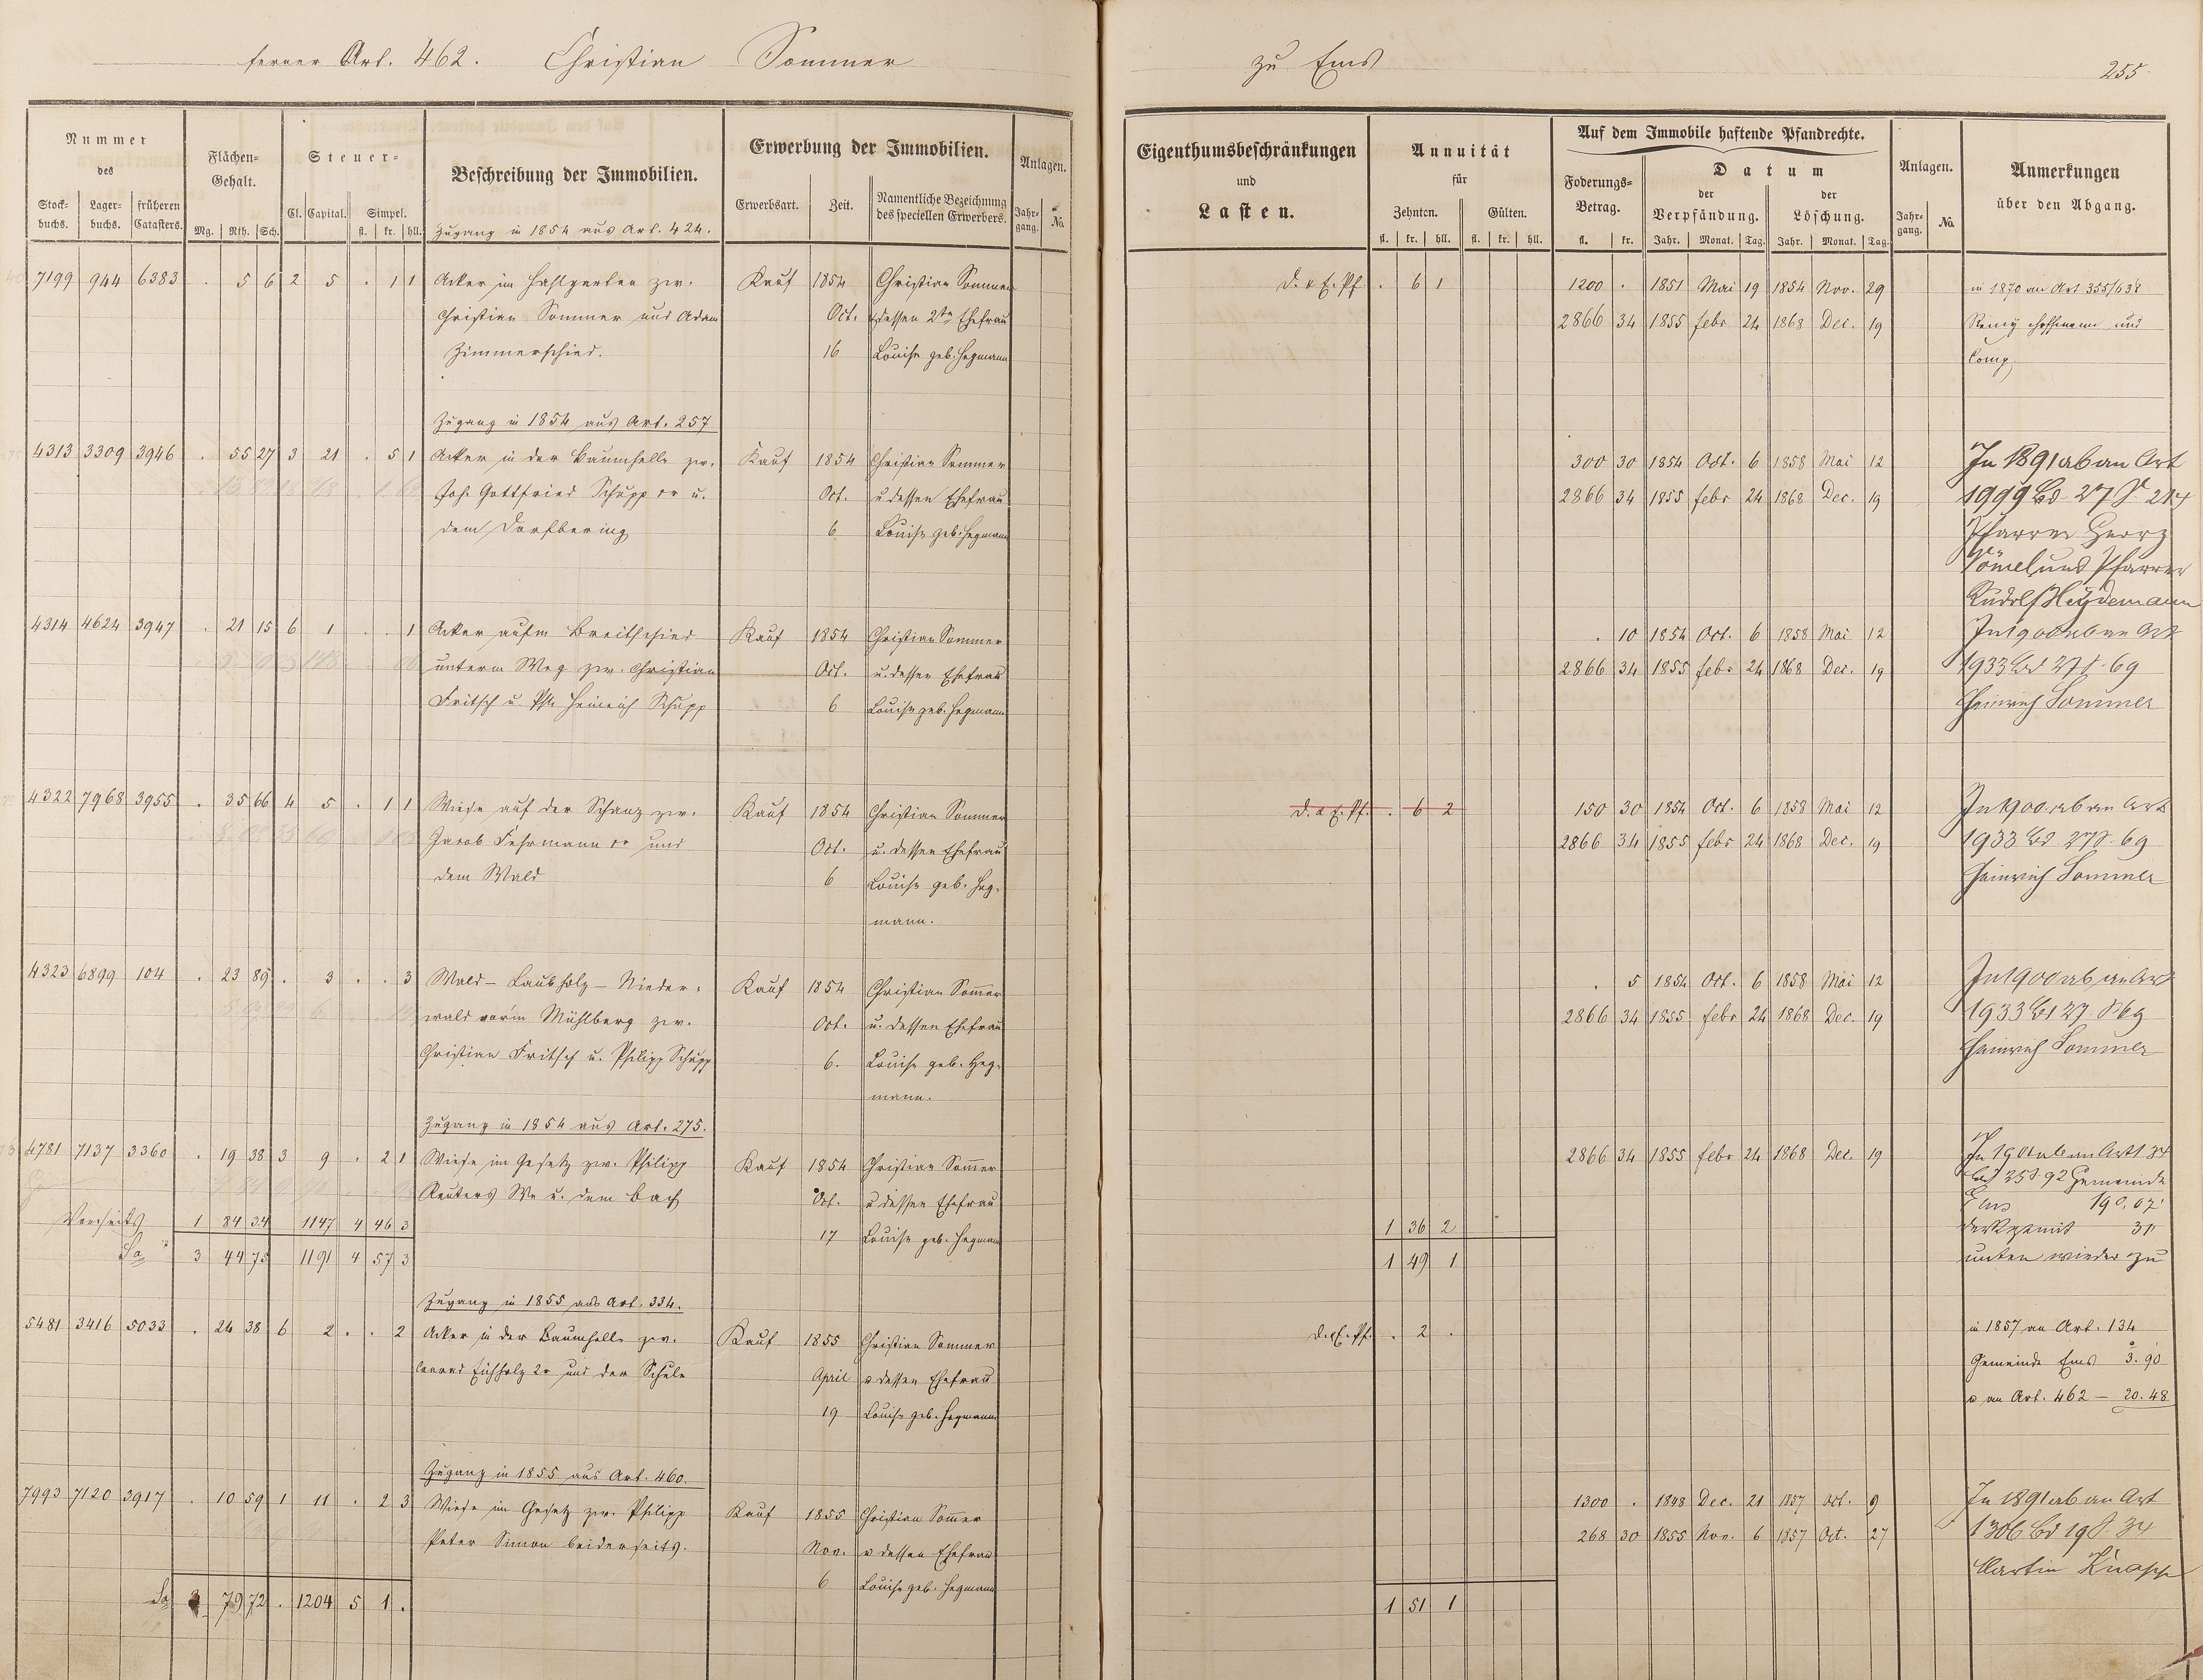 ferner Art. 462. Christian Sommer zu Ems 255.
Nummer des
Stockbuchs. Lagerbuchs. früheren Catasters.
Flächen-Gehalt.
Mg. Rth. Sch.
Steuer-
Cl. Capital. Simpel.
fl. kr. hll.
Beschreibung der Immobilien.
Erwerbung der Immobilien.
Erwerbsart. Zeit. Namentliche Bezeichnung des speciellen Erwerbers.
Anlagen.
Jahrgang. No.
Eigenthumsbeschränkungen und Lasten.
Annuität für
Zehnten. Gülten.
fl. kr. hll. fl. kr. hll.
Auf dem Immobile haftende Pfandrechte.
Foderungs-Betrag.
fl. kr.
Datum
der Verpfändung. der Löschung.
Jahr. Monat. Tag. Jahr. Monat. Tag.
Anlagen.
Jahrgang. No.
Anmerkungen über den Abgang.
Zugang in 1854 aus Art. 424.
7199 944 6383 . 5 6 2 5 . 1 1 Acker im zw. Kauf 1854 Christian Sommer d. a E. Pf. . 6 1 1200 . 1851 Mai 19 1854 Nov. 29 in 1870 an Art 355/
Christian Sommer und Adam Oct. dessen 2te Ehefrau 2866 34 1855 febr 24 1868 Dec. 19 Remy Hoffmann und
Zimmerschied. 16 Louise geb. Hegmann Comp.
Zugang in 1854 aus Art. 257
4313 3309 3946 . 55 27 3 21 . 5 1 Acker in der Baumhelle zw. Kauf 1854 Christian Sommer 300 30 1854 Oct. 6 1858 Mai 12 In 1891 ab an Art
Joh. Gottfried Schupp u. Oct. u dessen Ehefrau 2866 34 1855 febr 24 1868 Dec. 19 1999 Bd. 27 S.
dem Dorfbering 6 Louise geb. Hegmann Pfarrer
Vömel und Pfarrer
Rudolf Heydemann
4314 4624 3947 . 21 15 6 1 . . 1 Acker aufm Breitschied Kauf 1854 Christian Sommer . 10 1854 Oct. 6 1858 Mai 12 In 1900 ab an Art
unterm Weg zw. Christian Oct. u. dessen Ehefrau 2866 34 1855 febr 24 1868 Dec. 19 1933 Bd 27 S. 69
Fritsch u. Heinrich Schupp 6 Louise geb. Hegmann Heinrich Sommer
4322 7968 3955 . 35 66 4 5 . 1 1 Wiese auf der Schanz zw. Kauf 1854 Christian Sommer d. a E. Pf. . 6 2 150 30 1854 Oct. 6 1858 Mai 12 In 1900 ab an Art
Jacob Fuhrmann und Oct. u. dessen Ehefrau 2866 34 1855 febr 24 1868 Dec. 19 1933 Bd 27 S. 69
dem Wald 6 Louise geb. Heg- Heinrich Sommer
mann.
4323 6899 104 . 23 89 . 3 . . 3 Wald - Laubholz - Nieder- Kauf 1854 Christian Sommer . 5 1854 Oct. 6 1858 Mai 12 In 1900 ab an Art
wald vorm Mühlberg zw. Oct. u. dessen Ehefrau 2866 34 1855 febr 24 1868 Dec. 19 1933 Bd 27 S 69
Christian Fritsch u. Philipp Schupp 6. Louise geb. Heg- Heinrich Sommer
mann.
Zugang in 1854 aus Art. 275.
4781 7137 3360 . 19 38 3 9 . 2 1 Wiese im Gesetz zw. Philipp Kauf 1854 Christian Sommer 2866 34 1855 febr 24 1868 Dec. 19 In 1901 ab an Art 134
Reuters We u. dem Bach Oct. u dessen Ehefrau Bd 25 S 92 Gemeinde
Vorseits 1 84 34 1147 4 46 3 17 Louise geb. Hegmann 1 36 2 Ems
Sa 3 44 75 1191 4 57 3 1 49 1 unten wieder zu
Zugang in 1855 aus Art. 334.
5481 3416 5033 . 24 38 6 2 . . 2 Acker in der Baumhelle zw. Kauf 1855 Christian Sommer d. a E. Pf. . 2 . in 1857 an Art. 134
Eichholz 2r und der Schule April u dessen Ehefrau Gemeinde Ems 3. 90
19 Louise geb. Hegmann u an Art. 462 — 20. 48
Zugang in 1855 aus Art. 460.
7993 7120 3917 . 10 59 1 11 . 2 3 Wiese im Gesetz zw. Philipp Kauf 1855 Christian Sommer 1300 . 1848 Dec. 21 1857 Oct. 9 In 1891 ab an Art
Peter Simon beiderseits. Nov. u dessen Ehefrau 268 30 1855 Nov. 6 1857 Oct. 27 1306 Bd 19 S. 34
6 Louise geb. Hegmann Martin Knapp
Sa 3 79 72 . 1204 5 1 . 1 51 1